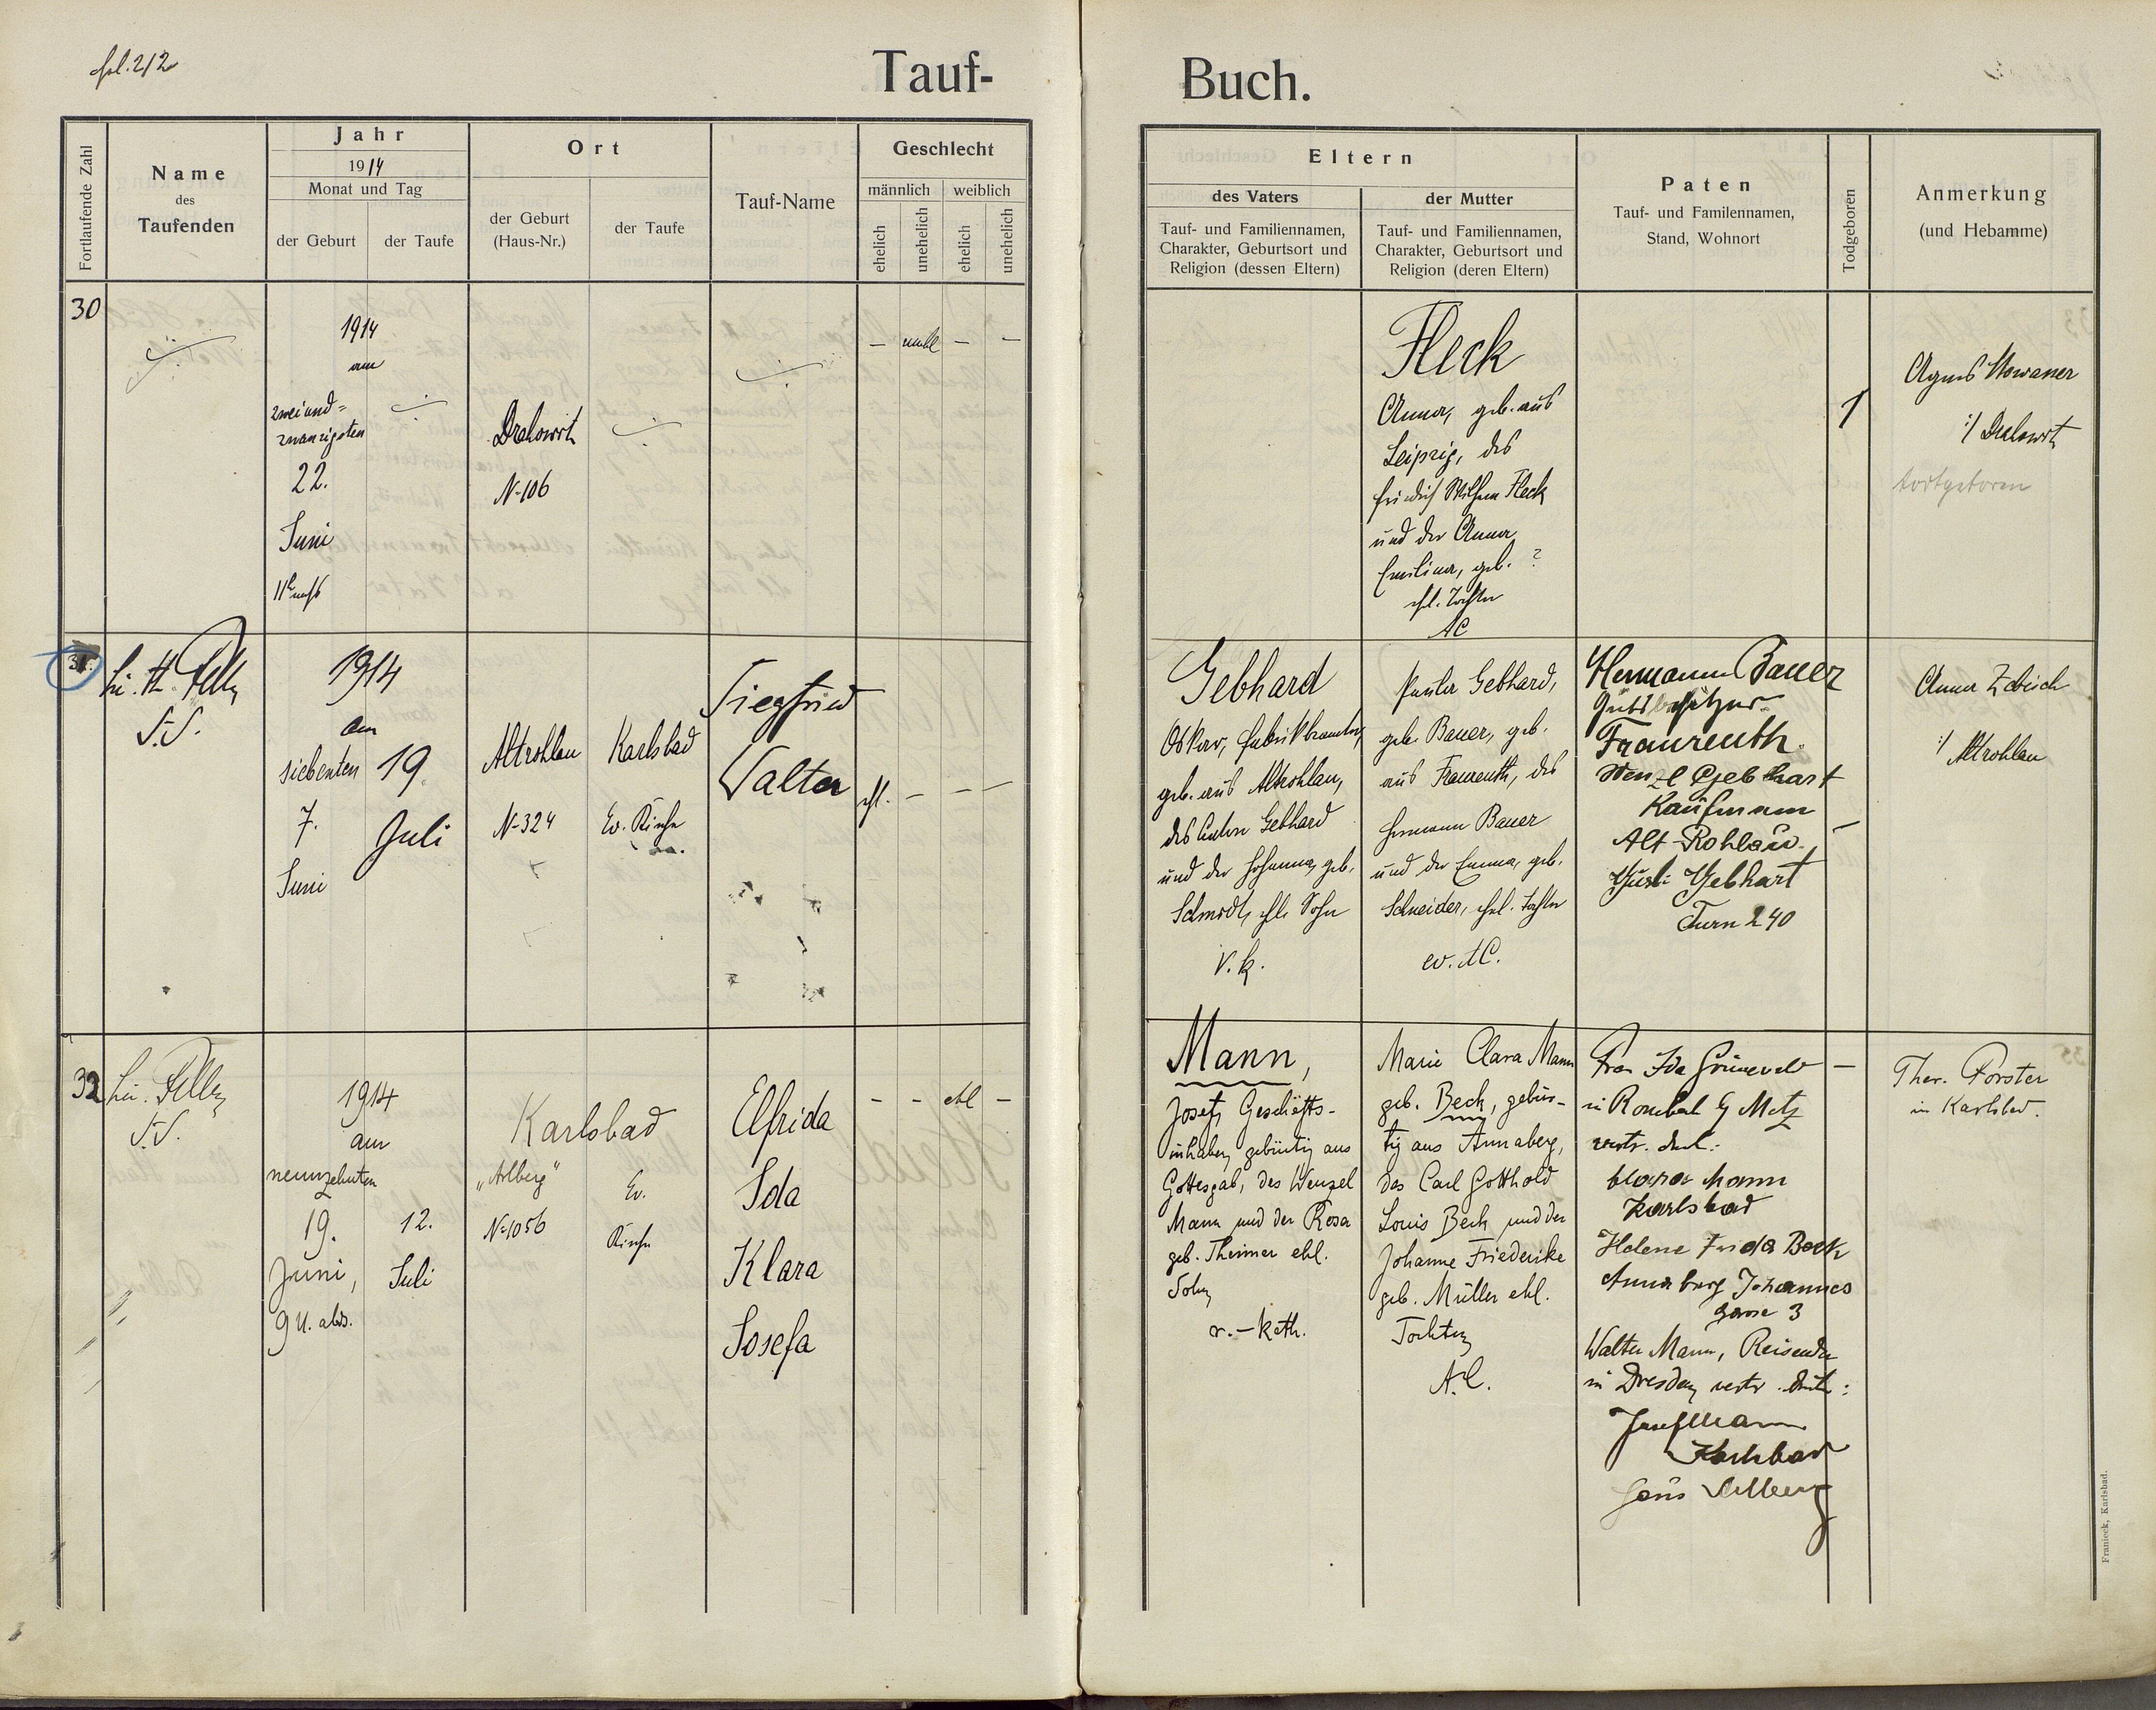 fol. 212
Tauf-
Buch.
Fortlaufende Zahl
Name
des
Taufenden
Jahr
1914
Monat und Tag
der Geburt
der Taufe
Ort
der Geburt
(Haus-Nr.)
der Taufe
Tauf-Name
Geschlecht
männlich
weiblich
ehelich
unehelich
ehelich
unehelich
Eltern
des Vaters
Tauf- und Familiennamen,
Charakter, Geburtsort und
Religion (dessen Eltern)
der Mutter
Tauf- und Familiennamen,
Charakter, Geburtsort und
Religion (deren Eltern)
Paten
Tauf- und Familennamen,
Stand, Wohnort
Todgeboren
Anmerkung
(und Hebamme)
30
1914
am
zweiund=
zwanzigsten
22.
Juni
Drahowitz
N-106
— unehl — —
Fleck
Anna, geb. aus
Leipzig, des
Friedrich Wilhelm Fleck
und der Anna
Emilina, geb. ?
ehl. Tochter
AC
1
Agnes
Drahowitz
31.
S.S.
1914
am
siebenten
7.
Juni
19.
Juli
Altrohlau
N-324
Karlsbad
Ev. Kirche
Siegfried
Walter
ehl. — — —
Gebhard
Oskar, Fabriksbeamter,
geb. aus Altrohlau,
des Anton Gebhard
und der Johanna, geb.
Schmidt, ehl. Sohn
r. k.
Paula Gebhard,
geb. Bauer, geb.
aus Fraureuth, des
Hermann Bauer
und der Emma, geb.
Schneider, ehel. Tochter
ev. AC.
Hermann Bauer
Gutsbesitzer
Fraureuth.
Wenzl Gebhart
Kaufmann
Alt-Rohlau.
Gusti Gebhart
Turn 240
—
Anna
Altrohlau
32
S.S.
1914
am
neunzehnten
19.
Juni,
9 U. abds.
12.
Juli
Karlsbad
"Arlberg"
N-1056
Ev.
Kirche
Elfrida
Ida
Klara
Josefa
— — ehl —
Mann,
Josef, Geschäfts-
inhaber, gebürtig aus
Gottesgab, des Wenzel
Mann und der Rosa
geb. Theimer ehl.
Sohn
r.-kath.
Marie Clara Mann
geb. Beck, gebür-
tig aus Annaberg,
des Carl Gotthold
Louis Beck und der
Johanne Friederike
geb. Müller ehl.
Tochter
A.C.
Frau Ida
in Rombach b/ Metz
vertr. durch:
Klara Mann
Karlsbad
Helene Frida Beck
Annaberg Johannes
gasse 3
Walter Mann, Reisender
in Dresden, vertr. durch:
Josef Mann
Karlsbad
—
Ther. Forster
in Karlsbad.
Franieck, Karlsbad.